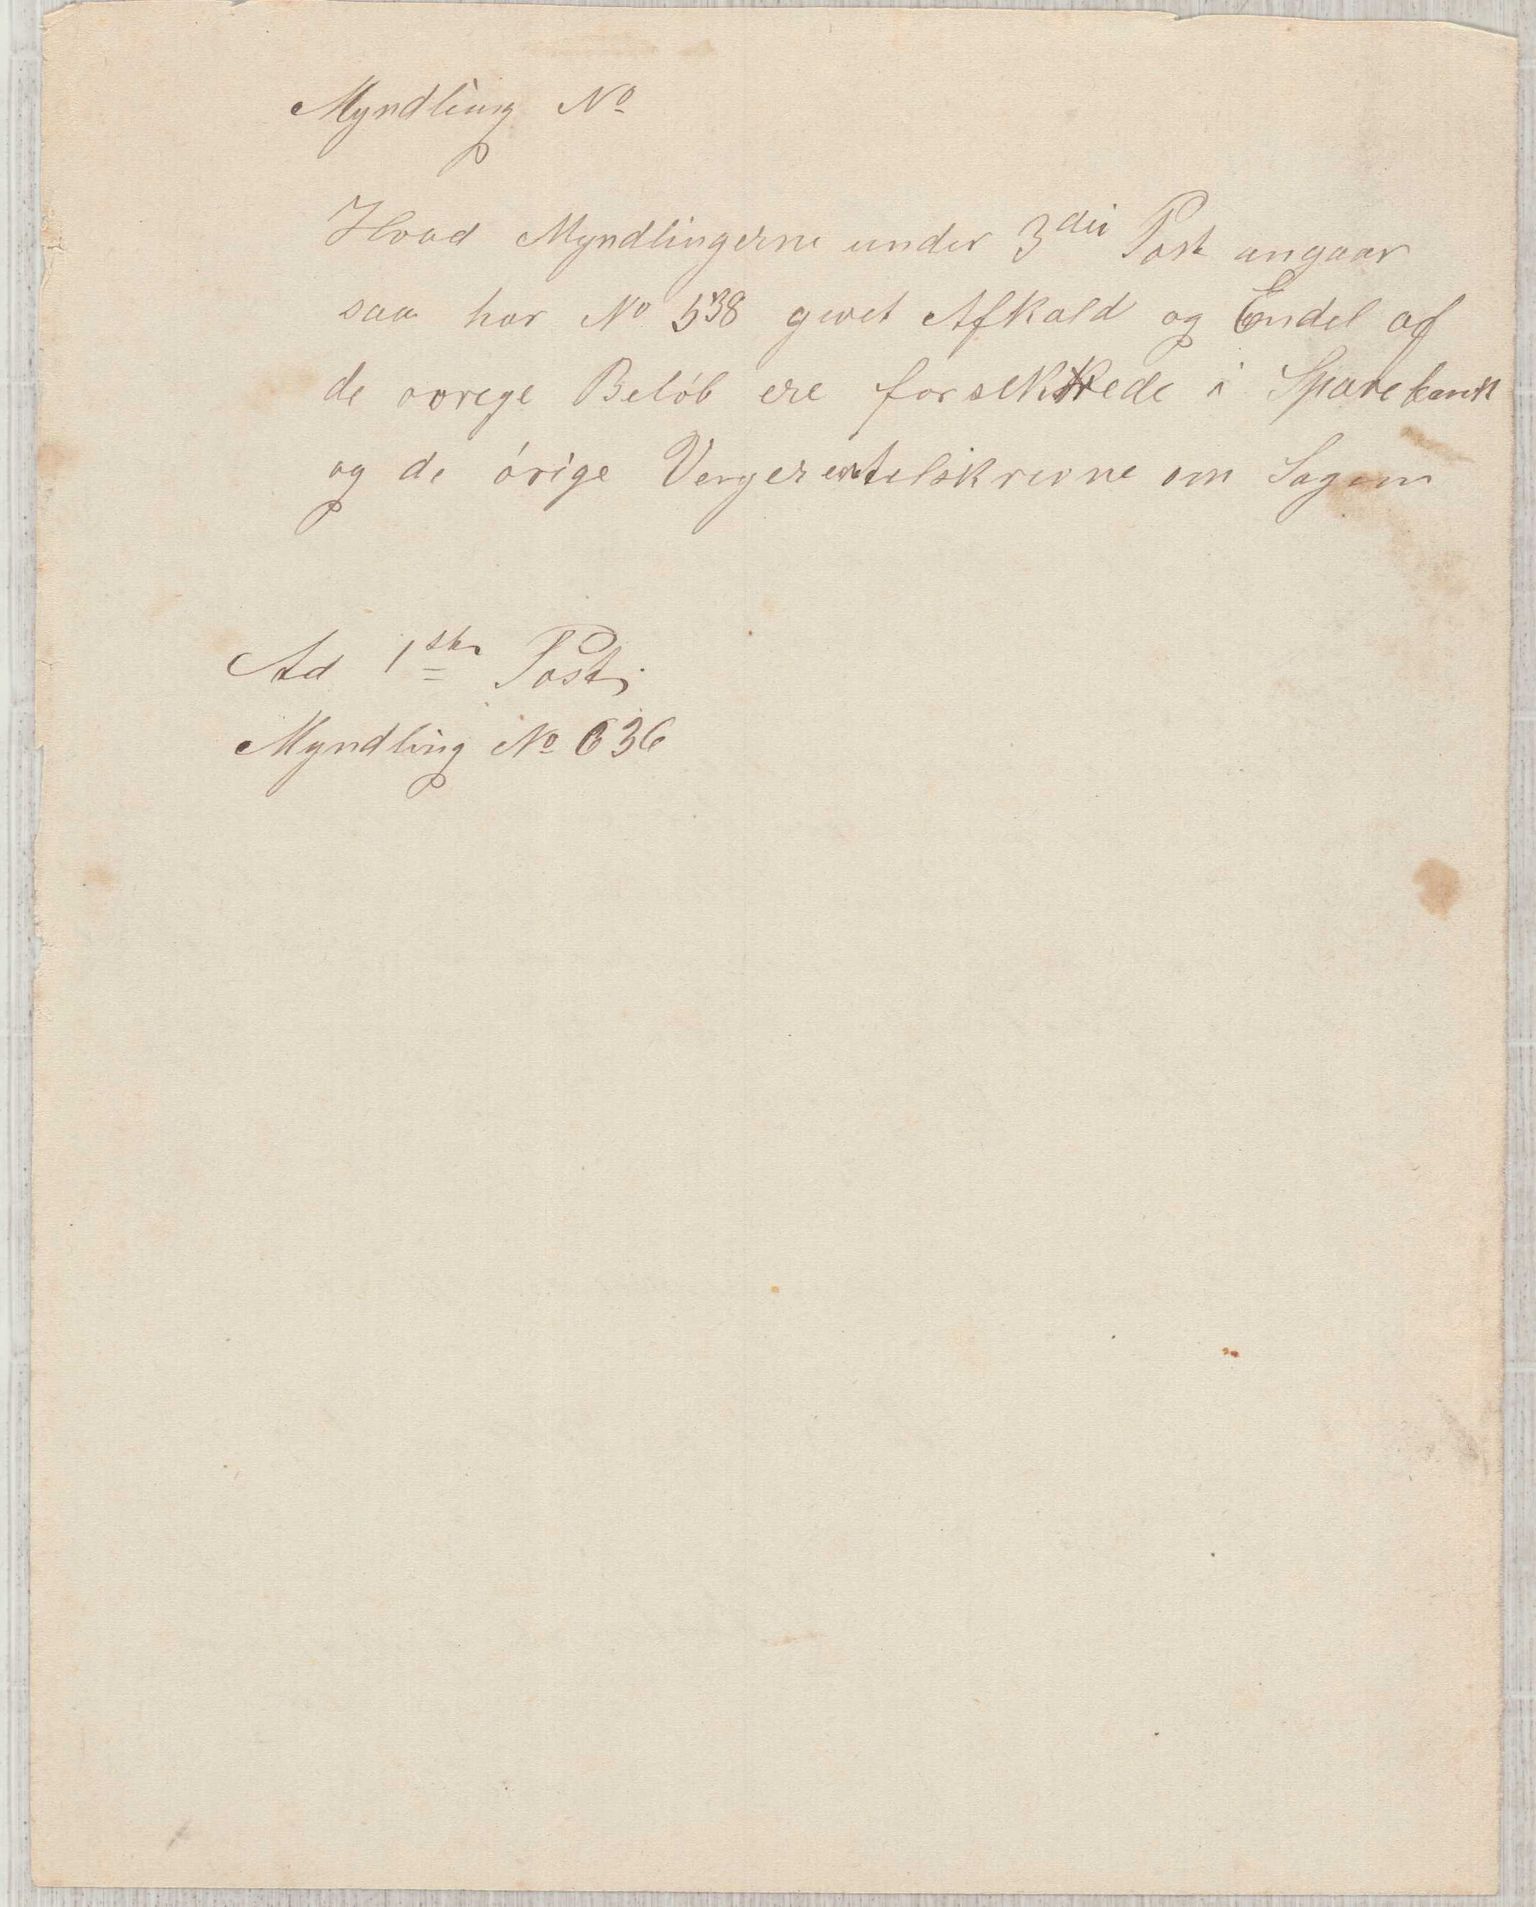 Myndling No
Hvad Myndlingerne under 3die Post angaar
saa har No 538 givet Afkald og Endel af
de ovrege Belöb ere forsekrede i Sparebank
og de örige Verger ere telskrevne om Sagen
Ad 1ste Post,
Myndling No 636